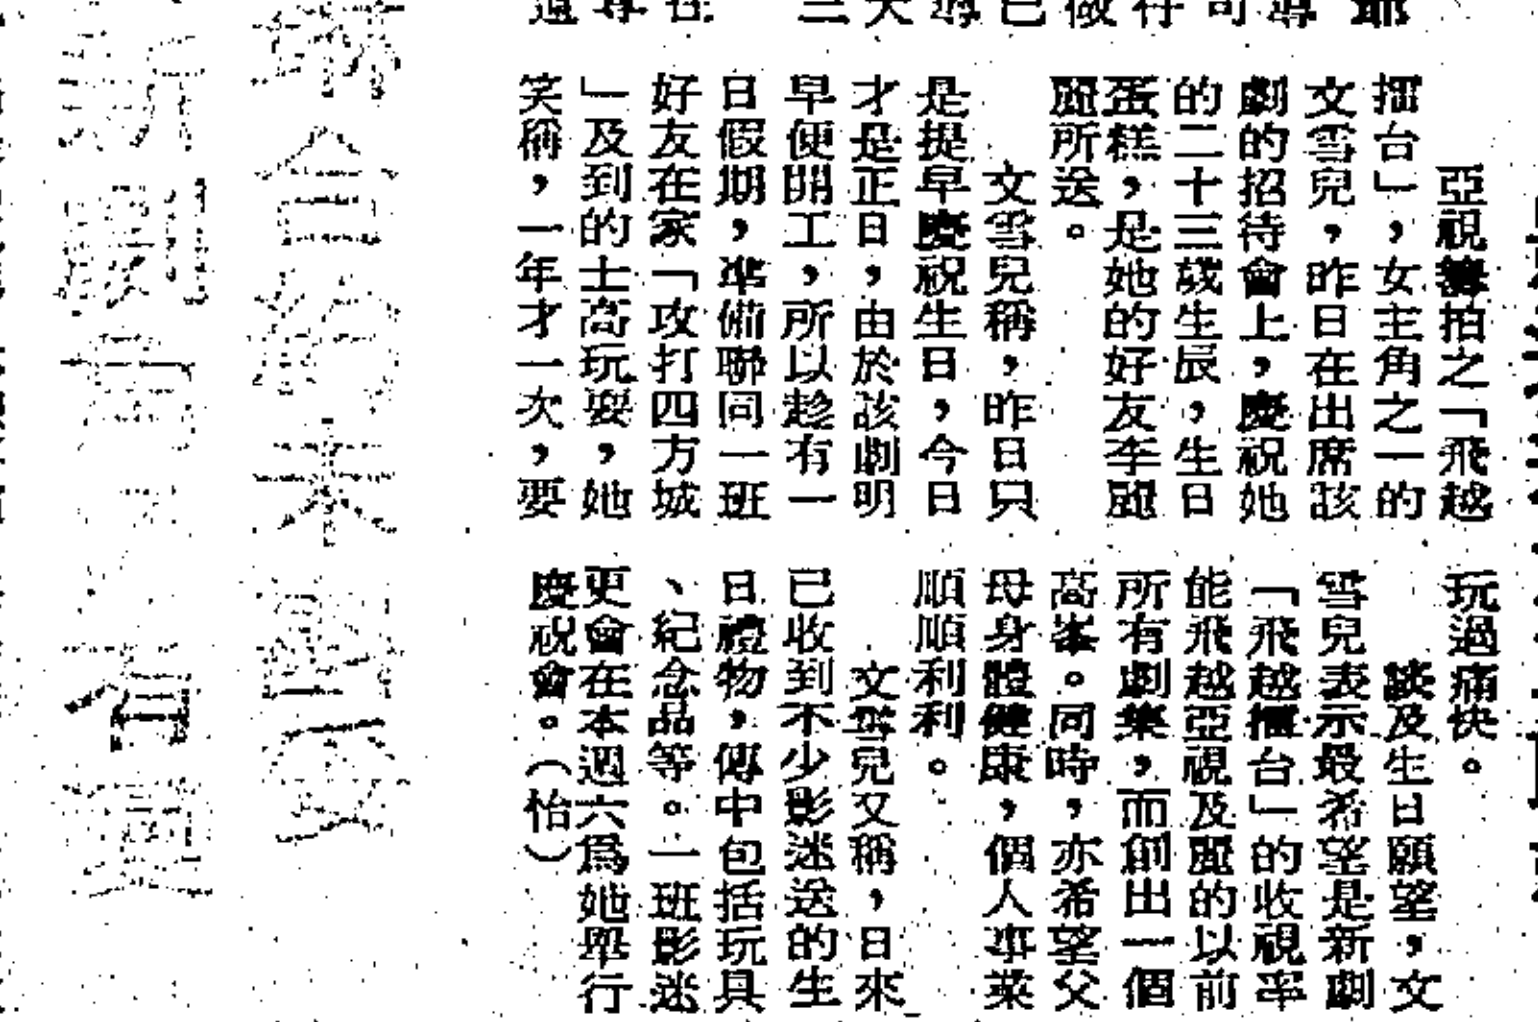 亞視籌拍之「飛越
擂台」，女主角之一的
文雪兒，昨日在出席該
劇的招待會上，慶祝她
的二十三歲生辰，生日
蛋糕，是她的好友李麗
麗所送。
文雪兒稱，昨日只
是提早慶祝生日，今日
才是正日，由於該劇明
早便開工，所以趁有一
日假期，準備聯同一班
好友在家「攻打四方城
」及到的士高玩耍，她
笑稱，一年才一次，要
玩過痛快。
談及生日願望，文
雪兒表示最希望是新劇
「飛越擂台」的收視率
能飛越亞視及麗的以前
所有劇集，而創出一個
高峯。同時，亦希望父
母身體健康，個人事業
順順利利。
文雪兒又稱，日來
已收到不少影迷送的生
日禮物，傳中包括玩具
、紀念品等。一班影迷
更會在本週六爲她舉行
慶祝會。（怡）
合約未
新劇有